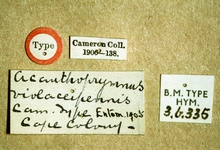 Type
Cameron Coll.
1905-138.
Acanthocryptus
violaceipennis
Cam. Type Entom. 1905
Cape Colony.
B.M. TYPE
HYM.
3.b.335